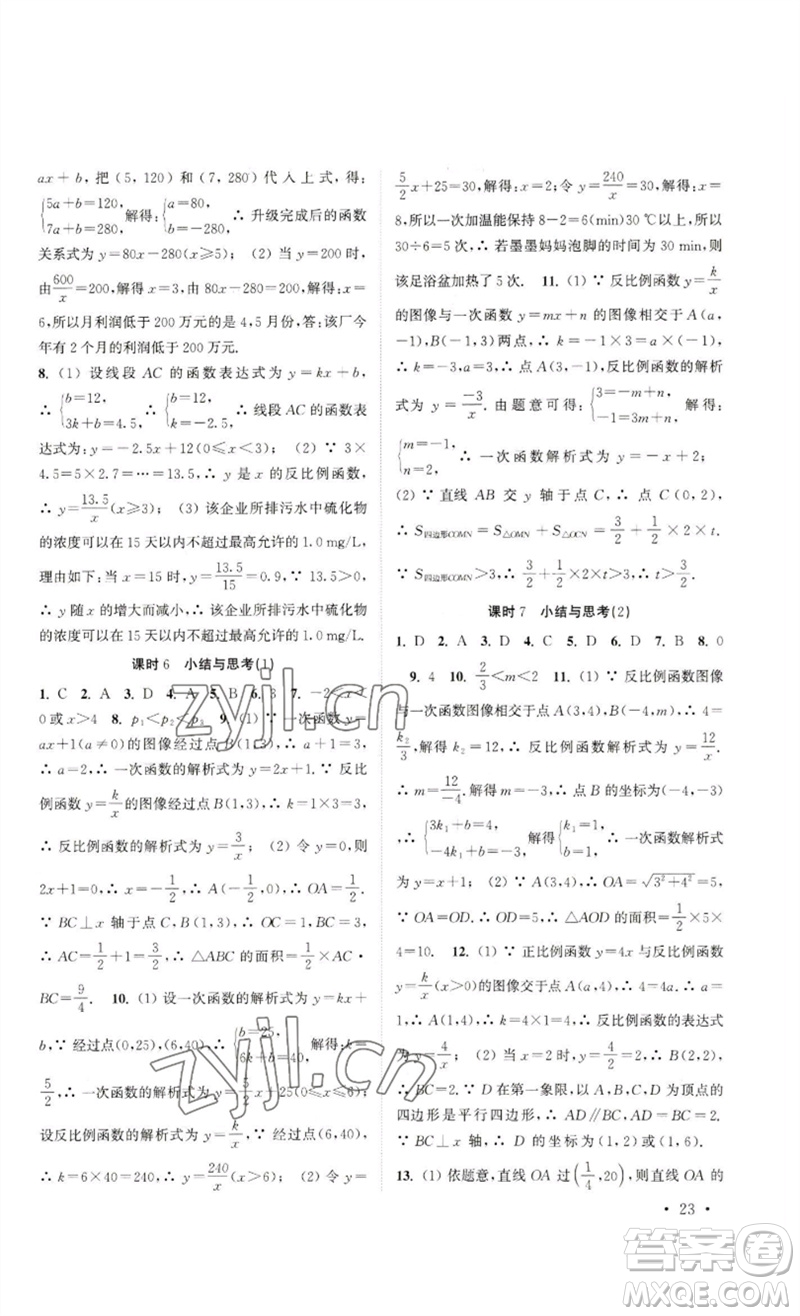 ax+b,把(5,120)和(7,280)代入上式,得:
{5a+b=120, 7a+b=280, 解得:{a=80, b=-280, ∴ 升级完成后的函数
关系式为 y=80x-280(x≥5); (2) 当 y=200 时,
由 600/x=200,解得:x=3,80x-280=200,解得:x=
6,所以月利润低于 200 万元的是 4,5 月份,答:该厂今
年有 2 个月的利润低于 200 万元.
8. (1) 设线段 AC 的函数表达式为 y=kx+b,
∴ {b=12, 3k+b=4.5, ∴ {b=12, k=-2.5, ∴ 线段 AC 的函数表
达式为:y=-2.5x+12(0≤x<3); (2) ∵ 3×
4.5=5×2.7=…=13.5,∴ y 是 x 的反比例函数,
∴ y=13.5/x(x≥3); (3) 该企业所排污水中硫化物
的浓度可以在 15 天以内不超过最高允许的 1.0 mg/L,
理由如下:当 x=15 时,y=13.5/15=0.9,∵ 13.5>0,
∴ y 随 x 的增大而减小,∴ 该企业所排污水中硫化物
的浓度可以在 15 天以内不超过最高允许的 1.0 mg/L.
课时 6 小结与思考(1)
1. C 2. A 3. D 4. C 5. B 6. 3 7. -2<x<
0或x>4 8. p₁<p₂<p₃ 9. (1) ∵ 一次函数 y=
ax+1(a≠0)的图像经过点 B(1,3),∴ a+1=3,
∴ a=2,∴ 一次函数的解析式为 y=2x+1. ∵ 反比
例函数 y=k/x 的图像经过点 B(1,3),∴ k=1×3=3,
∴ 反比例函数的解析式为 y=3/x; (2) 令 y=0,则
2x+1=0,∴ x=-1/2,∴ A(-1/2,0),∴ OA=1/2.
∵ BC⊥x 轴于点 C,B(1,3),∴ OC=1,BC=3,
∴ AC=1/2+1=3/2,∴ △ABC 的面积=1/2×AC·
BC=9/4. 10. (1) 设一次函数的解析式为 y=kx+
b,∵ 经过点(0,25),(6,40),∴ {b=25, 6k+b=40, 解得:k=
5/2,∴ 一次函数的解析式为 y=5/2x+25(0≤x≤6);
设反比例函数的解析式为 y=k/x,∵ 经过点(6,40),
∴ k=6×40=240,∴ y=240/x(x>6); (2) 令 y=
5/2x+25=30,解得:x=2;令 y=240/x=30,解得:x=
8,所以一次加温能保持 8-2=6(min)30 ℃以上,所以
30÷6=5 次,∴ 若墨墨妈妈泡脚的时间为 30 min,则
该足浴盆加热了 5 次. 11. (1) ∵ 反比例函数 y=k/x
的图像与一次函数 y=mx+n 的图像相交于 A(a,
-1),B(-1,3)两点,∴ k=-1×3=a×(-1),
∴ k=-3,a=3,∴ 点 A(3,-1),反比例函数的解析
式为 y=-3/x. 由题意可得:{3=-m+n, -1=3m+n, 解得:
{m=-1, n=2, ∴ 一次函数解析式为 y=-x+2;
(2) ∵ 直线 AB 交 y 轴于点 C,∴ 点 C(0,2),
∴ S四边形COMN=S△OMN+S△OCN=3/2+1/2×2×t.
∵ S四边形COMN>3,∴ 3/2+1/2×2×t>3,∴ t>3/2.
课时 7 小结与思考(2)
1. D 2. A 3. D 4. C 5. D 6. B 7. B 8. 0
9. 4 10. 2/3<m<2 11. (1) ∵ 反比例函数图像
与一次函数图像相交于点 A(3,4),B(-4,m),∴ 4=
k₂/3,解得 k₂=12,∴ 反比例函数解析式为 y=12/x,
∴ m=12/-4.∴ m=-3,∴ 点 B 的坐标为(-4,-3)
,∴ {3k₁+b=4, -4k₁+b=-3, 解得{k₁=1, b=1, ∴ 一次函数解析式
为 y=x+1; (2) ∵ A(3,4),∴ OA=√3²+4²=5,
∵ OA=OD.∴ OD=5,∴ △AOD 的面积=1/2×5×
4=10. 12. (1) ∵ 正比例函数 y=4x 与反比例函数
y=k/x(x>0)的图像交于点 A(a,4),∴ 4=4a.∴ a=
1,∴ A(1,4),∴ k=4×1=4,∴ 反比例函数的表达式
为 y=4/x; (2) 当 x=2 时,y=4/2=2,∴ B(2,2),
∴ BC=2.∵ D 在第一象限,以 A,B,C,D 为顶点的
四边形是平行四边形,∴ AD∥BC,且 AD=BC=2.
∵ BC⊥x 轴,∴ D 的坐标为(1,2)或(1,6).
13. (1) 依题意,直线 OA 过(1/4,20),则直线 OA 的
• 23 •
zyjl.cn
zyjl.cn
答案圈
MXQE.COM